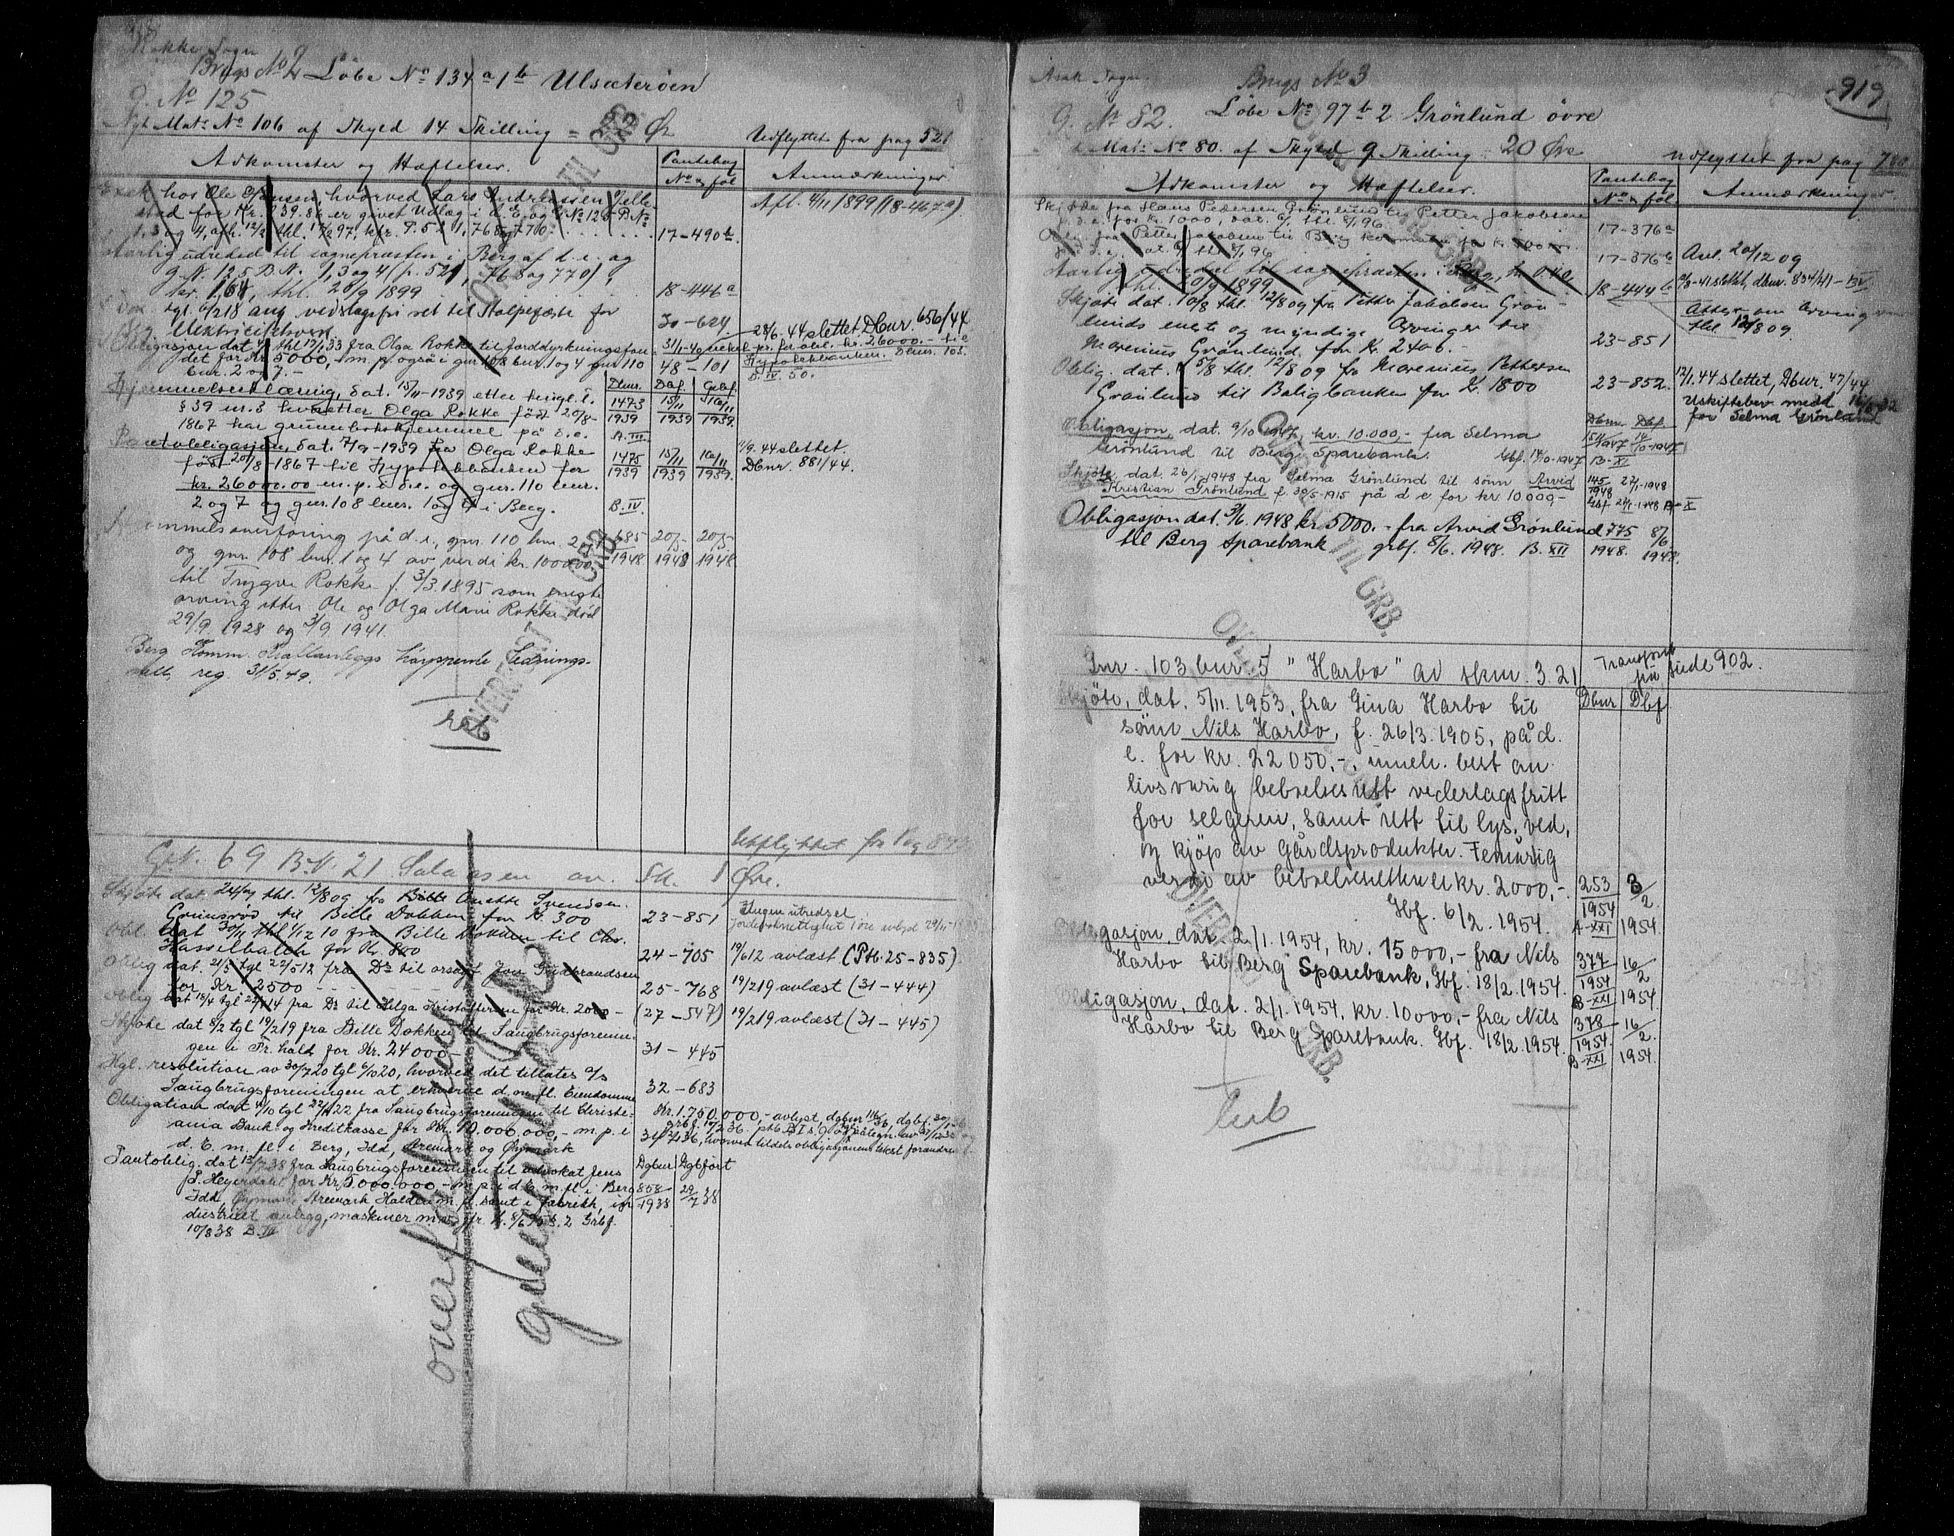 Rokke Sogn
Brugs No 2 Løbe No 134 a 1 b Ulsæterøen
G. No 125
Nyt Mat. No 106 af Skyld 14 Skilling = Øre
Udflyttet fra pag 521
Adkomster og Hæftelser.
Pantebog
No & fol
Anmærkninger
hos Ole Hansen, hvorved Lars Andreassen
stad for Kr. 939.86 er givet Udlæg i d. E. og G No 125 B No
1, 3 og 4, afh. 12/2 thl. 17/2 97, kfr. P. 521, 768 og 770
17-490 b.
Afl. 4/11 1899 (18-467 a)
Aarlig udredsel til sognepræsten i Berg af d. e. og
g. N. 125 B. N. 1, 3 og 4 (p. 521, 768 og 770)
kr. 1,64, thl. 20/9 1899
18-446 a
tgl. 6/2 18 ang. vederlagsfri ret til Stolpefæste for
Elektricitetsverk
30-629
28/6.44 slettet Dbnr. 656/44
Obligasjon dat 4/1 thl 17/1 33 fra Olga Rokke til forddyrkningsfon-
det for Kr 5000,- m. p. også i gnr 108 bnr. 1 og 4 gnr 110
bnr. 2 og 7.-
48-101
31/1-40 vek. pr. for obl. kr. 26000.- til
Hypotekbanken. Dbnr. 103.
B. IV. 50.
Hjemmelserklæring, dat. 15/11-1939 etter tingl. l.
§ 39 nr. 3 hvoretter Olga Rokke født 20/8-
1867 har grunnbokshjemmel på d. e.
Dbnr. Daf. Grbf.
1473 15/11 16/11
1939 1939 1939.
A. III.
Panteobligasjon, dat. 7/9-1939 fra Olga Rokke
født 20/8-1867 til Hypotekbanken for
kr. 26000.00 m. p. i d. e. og gnr. 110 bnr.
2 og 7 og gnr. 108 bnr. 1 og 4 i Berg.
1475 15/11 16/11
1939 1939 1939.
B. IV.
11/9. 44 slettet.
Dbnr. 881/44.
Hjemmelsoverføring på d. e., gnr. 110 bnr. 2 og 7
og gnr. 108 bnr. 1 og 4 av verdi kr. 100000,
til Trygve Rokke f. 3/3. 1895 som eneste
arving etter Ole og Olga Marie Rokke død
29/9. 1928 og 3/9. 1941.
685 20/5- 20/5-
1948 1948 1948
Berg Komm. Kraftanleggs høyspente Lednings-
nett reg 31/5.49.
OVERFØRT TIL GRB.
OVERFØRT TIL GRB.
Udflyttet fra Pag 893
G.N. 69 B.N. 21 Solaasen av Sk. 1 Øre.
Skjøte dat. 24/7 09 thl. 12/8 09 fra Bitte Anette Svendsen
Grimsrød til Bille Dokken for Kr. 300
23-851
Ingen utredsel
Obl. dat 30/11 thl 1/12 10 fra Bille Dokken til Chr.
Hasselbalch for Kr. 800
24-705
19/6 12 avlæst (Ptb. 25-835)
Oblig dat. 21/5 tgl 22/5 12 fra Do til orsagf. Jon Gudbrandsen
for Kr 2500
25-768
19/2 19 avlæst (31-444)
Oblig dat 12/4 tgl 24/4 14 fra Do til Helga Kristoffersen for Kr. 2000-
(27-547)
19/2 19 avlæst (31-445)
Skjøte dat 6/2 tgl 19/2 19 fra Bille Dokken til Saugbrugsforenin-
gen i Fr. hald for Kr. 24000-
31-445
Kgl. resolution av 30/7 20 tgl 6/10 20, hvorved det tillates A/S
Saugbrugsforeningen at erhverve d. m. fl. Eiendomme
32-683
Obligation dat 4/10 tgl 22/11 22 fra Saugbrugsforeningen til Christi-
ania Bank og Kreditkasse for Kr. 10.000.000,- m. p. i
d. E. m. fl. i Berg, Idd, Aremark og Øymark
Kr. 1.750.000,- avlyst, dgbnr 116/36, dgbf. 30/1-36
hvorved tildels obligasjonens tekst forandres
Pantoblig. dat 13/7 38 fra Saugbrugsforeningen til advokat Jens
P. Heyerdahl for Kr 5.000.000,- m. p. i d. E. m. fl. i Berg
Idd, Øymark Aremark Halden m. fl. samt i fabrikk, in-
dustriell anlegg, maskiner m. v. jfr. l. 8/6 95 § 2 Grbf.
10/8 38 B. III
Dgbnr Dgbført
858 29
1938 7 38
overført og
919
Asak Sogn.
Brugs No 3
G. No 82. Løbe No 97 b 2 Grönlund övre
Nyt Mat. No 80. af Skyld 9 Skilling = 20 Øre
Udflyttet fra pag 780
Adkomster og Hæftelser.
Pantebog
No & fol
Anmærkninger.
Skjøde fra Hans Pedersen Grønlund til Petter Jakobsen
d. e. for kr. 1000, dat. 6/1 thl. 8/1 96.
17-376 a
Oblig. fra Petter Jakobsen til Berg Kommune for kr.
d. e. dat. 6/1 thl 8/1 96
17-376 b
Avl. 20/12 09
Aarlig udredsel til sognepræsten i Berg,
thl. 20/9 1899
18-444 b
slettet, dbnr. 834/41 - B IV
Skjøte dat. 10/8 thl. 12/8 09 fra Petter Jakobsen Grøn-
lunds enest og myndige Arvinger til
Morenius Grönlund for Kr. 2406.-
23-851
Attest om Arving
thl 12/8 09
Oblig. dat. 5/8 thl. 12/8 09 fra Morenius Pettersen
Grønlund til Boligbanken for Kr. 1800
23-852.
12/1. 44 slettet, Dbnr. 47/44
Uskiftebev. medd
for Selma Grønlund
Obligasjon, dat. 9/10 1947, kr. 10.000,- fra Selma
Grönlund til Berg Sparebank. Gbf. 14/10-1947
Dbnr. Dbf.
B-XI
Skjöte dat. 26/1-1948 fra Selma Grönlund til sönn Arvid
Kristian Grönlund f. 30/5-1915 på d e for kr 10000,-
145 27/1-1948
1948
Gbf. 27/1-1948 A-X
Obligasjon dat. 3/6. 1948 kr 5000.- fra Arvid Grönlund
til Berg Sparebank grbf. 8/6. 1948. B. XII
775 8/6
1948. 1948
OVERFØRT TIL GRB.
Gnr. 103 bnr. 5 "Harbo" av skm. 3 21
Transport fra side 902.
Dbnr Dbf
Skjöte, dat. 5/11. 1953, fra Gina Harbo til
sönn Nils Harbo, f. 26/3. 1905, på d.
e. for kr. 22050,-, inneh. best an
livsvarig bebrelsesrett vederlagsfritt
for selgeren, samt rett til lys, ved,
og kjöp av gårdsprodukter. Femårig
verdi av bebrelsesretten er kr. 2000,-.
Gbf. 6/2. 1954.
253 3/2.
1954 1954.
A-XXI
Obligasjon, dat. 2/1. 1954, kr. 15000,- fra Nils
Harbo til Berg Sparebank, Gbf. 18/2. 1954.
377 16/2
1954 1954.
B-XXI
Obligasjon, dat. 2/1. 1954, kr. 10000,- fra Nils
Harbo til Berg Sparebank. Gbf. 18/2. 1954.
378 16/2.
1954. 1954.
B-XXI
OVERFØRT TIL GRB.